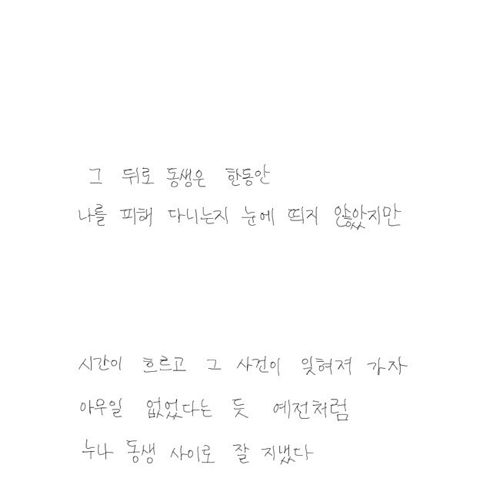 그 뒤로 동생은 한동안
나를 피해 다니는지 눈에 띄지 않았지만
시간이 흐르고 그 사건이 잊혀져 가자
아무일 없었다는 듯 예전처럼
누나 동생 사이로 잘 지냈다